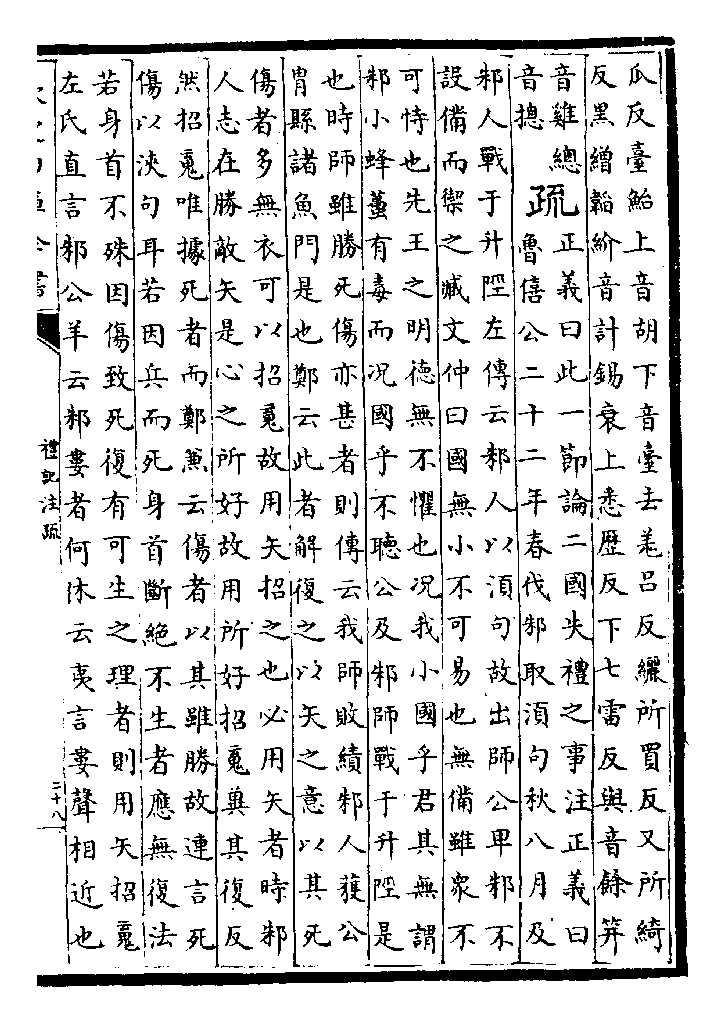 瓜反臺鮐上音胡下音臺去羌呂反纚所買反又所綺
反黑繒韜紒音計錫衰上悉歷反下七雷反與音餘笄
音雞總
音摠
疏
正義曰此一節論二國失禮之事注正義曰
魯僖公二十二年春伐邾取湏句秋八月及
邾人戰于升陘左傳云邾人以湏句故出師公卑邾不
設備而禦之臧文仲曰國無小不可易也無備雖衆不
可恃也先王之明德無不懼也况我小國乎君其無謂
邾小蜂蠆有毒而况國乎不聽公及邾師戰于升陘是
也時師雖勝死傷亦甚者則傳云我師敗績邾人獲公
胄縣諸魚門是也鄭云此者解復之以矢之意以其死
傷者多無衣可以招䰟故用矢招之也必用矢者時邾
人志在勝敵矢是心之所好故用所好招䰟兾其復反
然招䰟唯據死者而鄭兼云傷者以其雖勝故連言死
傷以浹句耳若因兵而死身首斷絶不生者應無復法
若身首不殊因傷致死復有可生之理者則用矢招䰟
左氏直言邾公羊云邾婁者何休云夷言婁聲相近也
禮記注疏
二十八